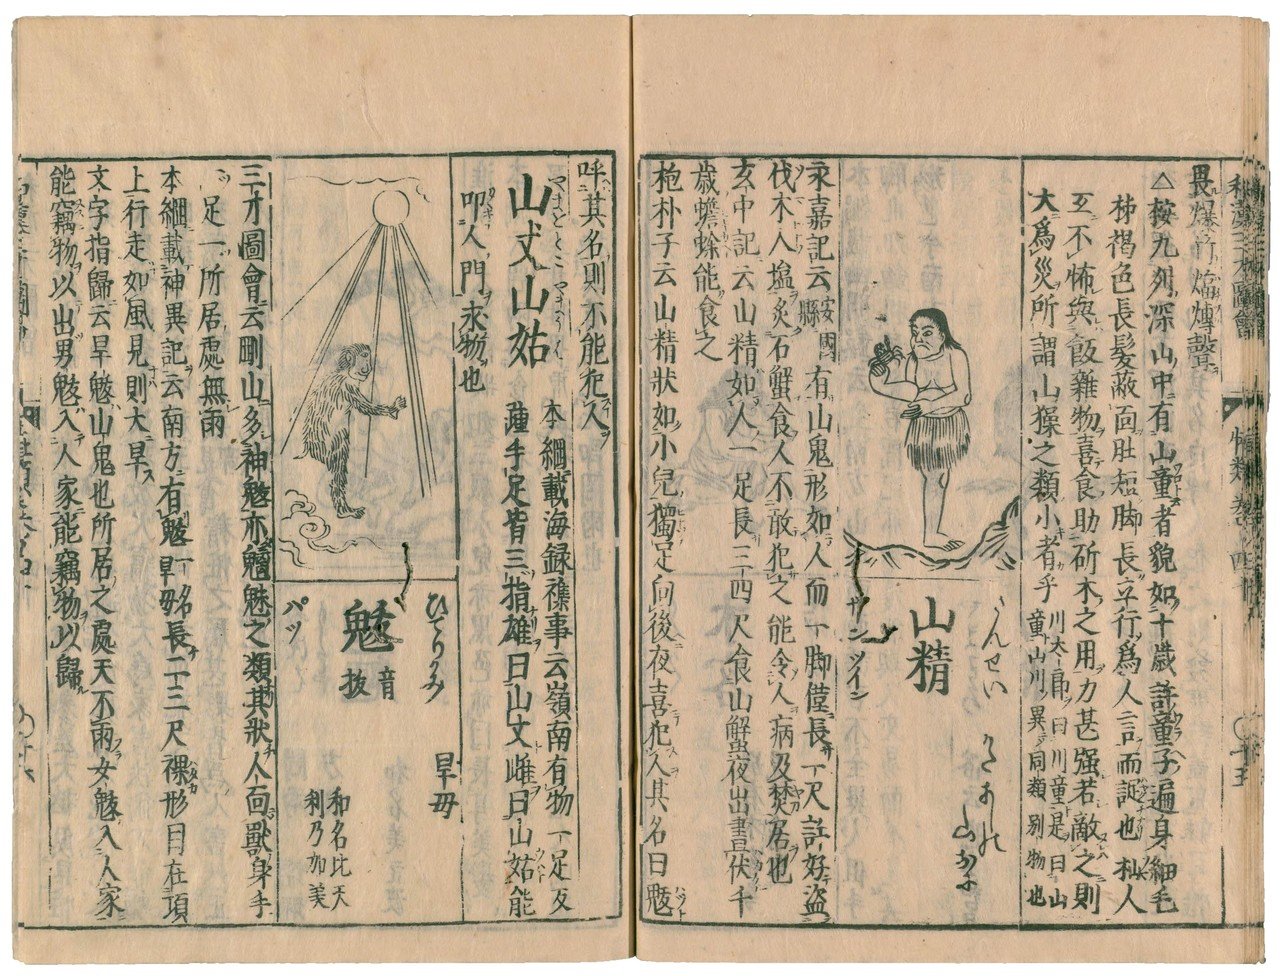 畏爆竹煏煿聲
△按九列深山中有山童者貌如十歲許童子遍身細毛
柹褐色長髮蔽面肚短脚長立行爲人言而訴也杣人
互不怖與飯雜物喜食助斫木之用力甚强若敵之則
大爲災所謂山㺐之類小者乎
川太郎曰川童是曰山
童山川異同類別物也
さんせい
山精
サンツイン
永嘉記云安國縣有山鬼形如人而一脚僅長一尺許好盜
伐木人塩炙石蟹食人不敢犯之能令人病及焚居也
玄中記云山精如人一足長三四尺食山蟹夜出晝伏千
歲蟾蜍能食之
抱朴子云山精狀如小兒獨足向後夜喜犯人其名曰魃
呼其名則不能犯人
山丈山姑
本綱載海録襍事云嶺南有物一足反
踵手足皆三指雄曰山丈雌曰山姑能
叩人門求物也
ひでりかみ
魃
音拔
パツ
旱毋
和名比天
利乃加美
三才圖會云剛山多神魃亦魑魅之類其狀人面獸身手
一足一所居處無雨
本綱載神異記云南方有魃一名旱毋長二三尺裸形目在項
上行走如風見則大旱
文字指歸云旱魃山鬼也所居之處天不雨女魃入人家
能竊物以出男魃入人家能竊物以歸